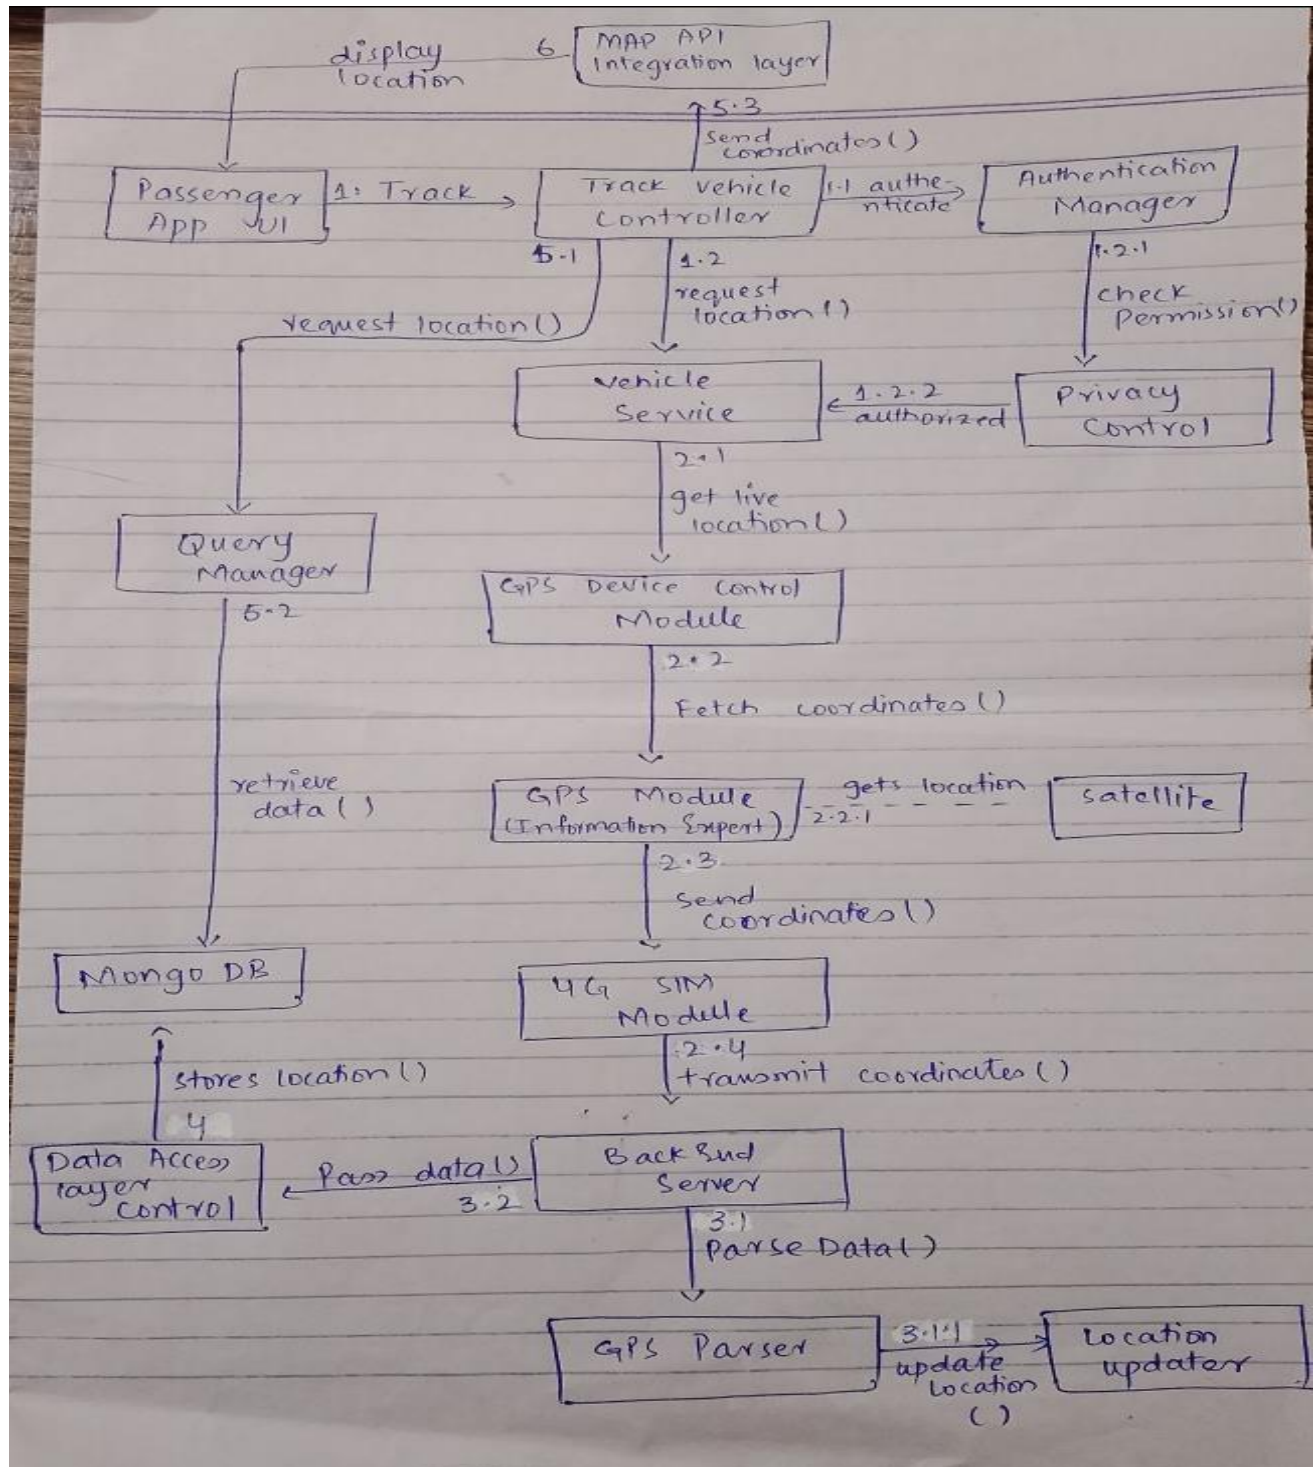 display
location
6
MAP API
Integration layer
5.3
send
coordinates()
Passenger
App UI
1: Track
Track vehicle
Controller
1.1 authe-
nticate
Authentication
Manager
5.1
1.2
request
location()
1.2.1
check
Permission()
request location()
vehicle
Service
1.2.2
authorized
Privacy
Control
2.1
get live
location()
Query
Manager
5.2
GPS Device Control
Module
2.2
Fetch coordinates()
retrieve
data()
GPS Module
(Information Expert)
gets location
2.2.1
satellite
2.3
send
coordinates()
Mongo DB
4G SIM
Module
2.4
transmit coordinates()
stores location()
4
Data Access
layer
Control
Pass data()
3.2
BackEnd
Server
3.1
Parse Data()
GPS Parser
3.1.1
update
location
()
Location
updater